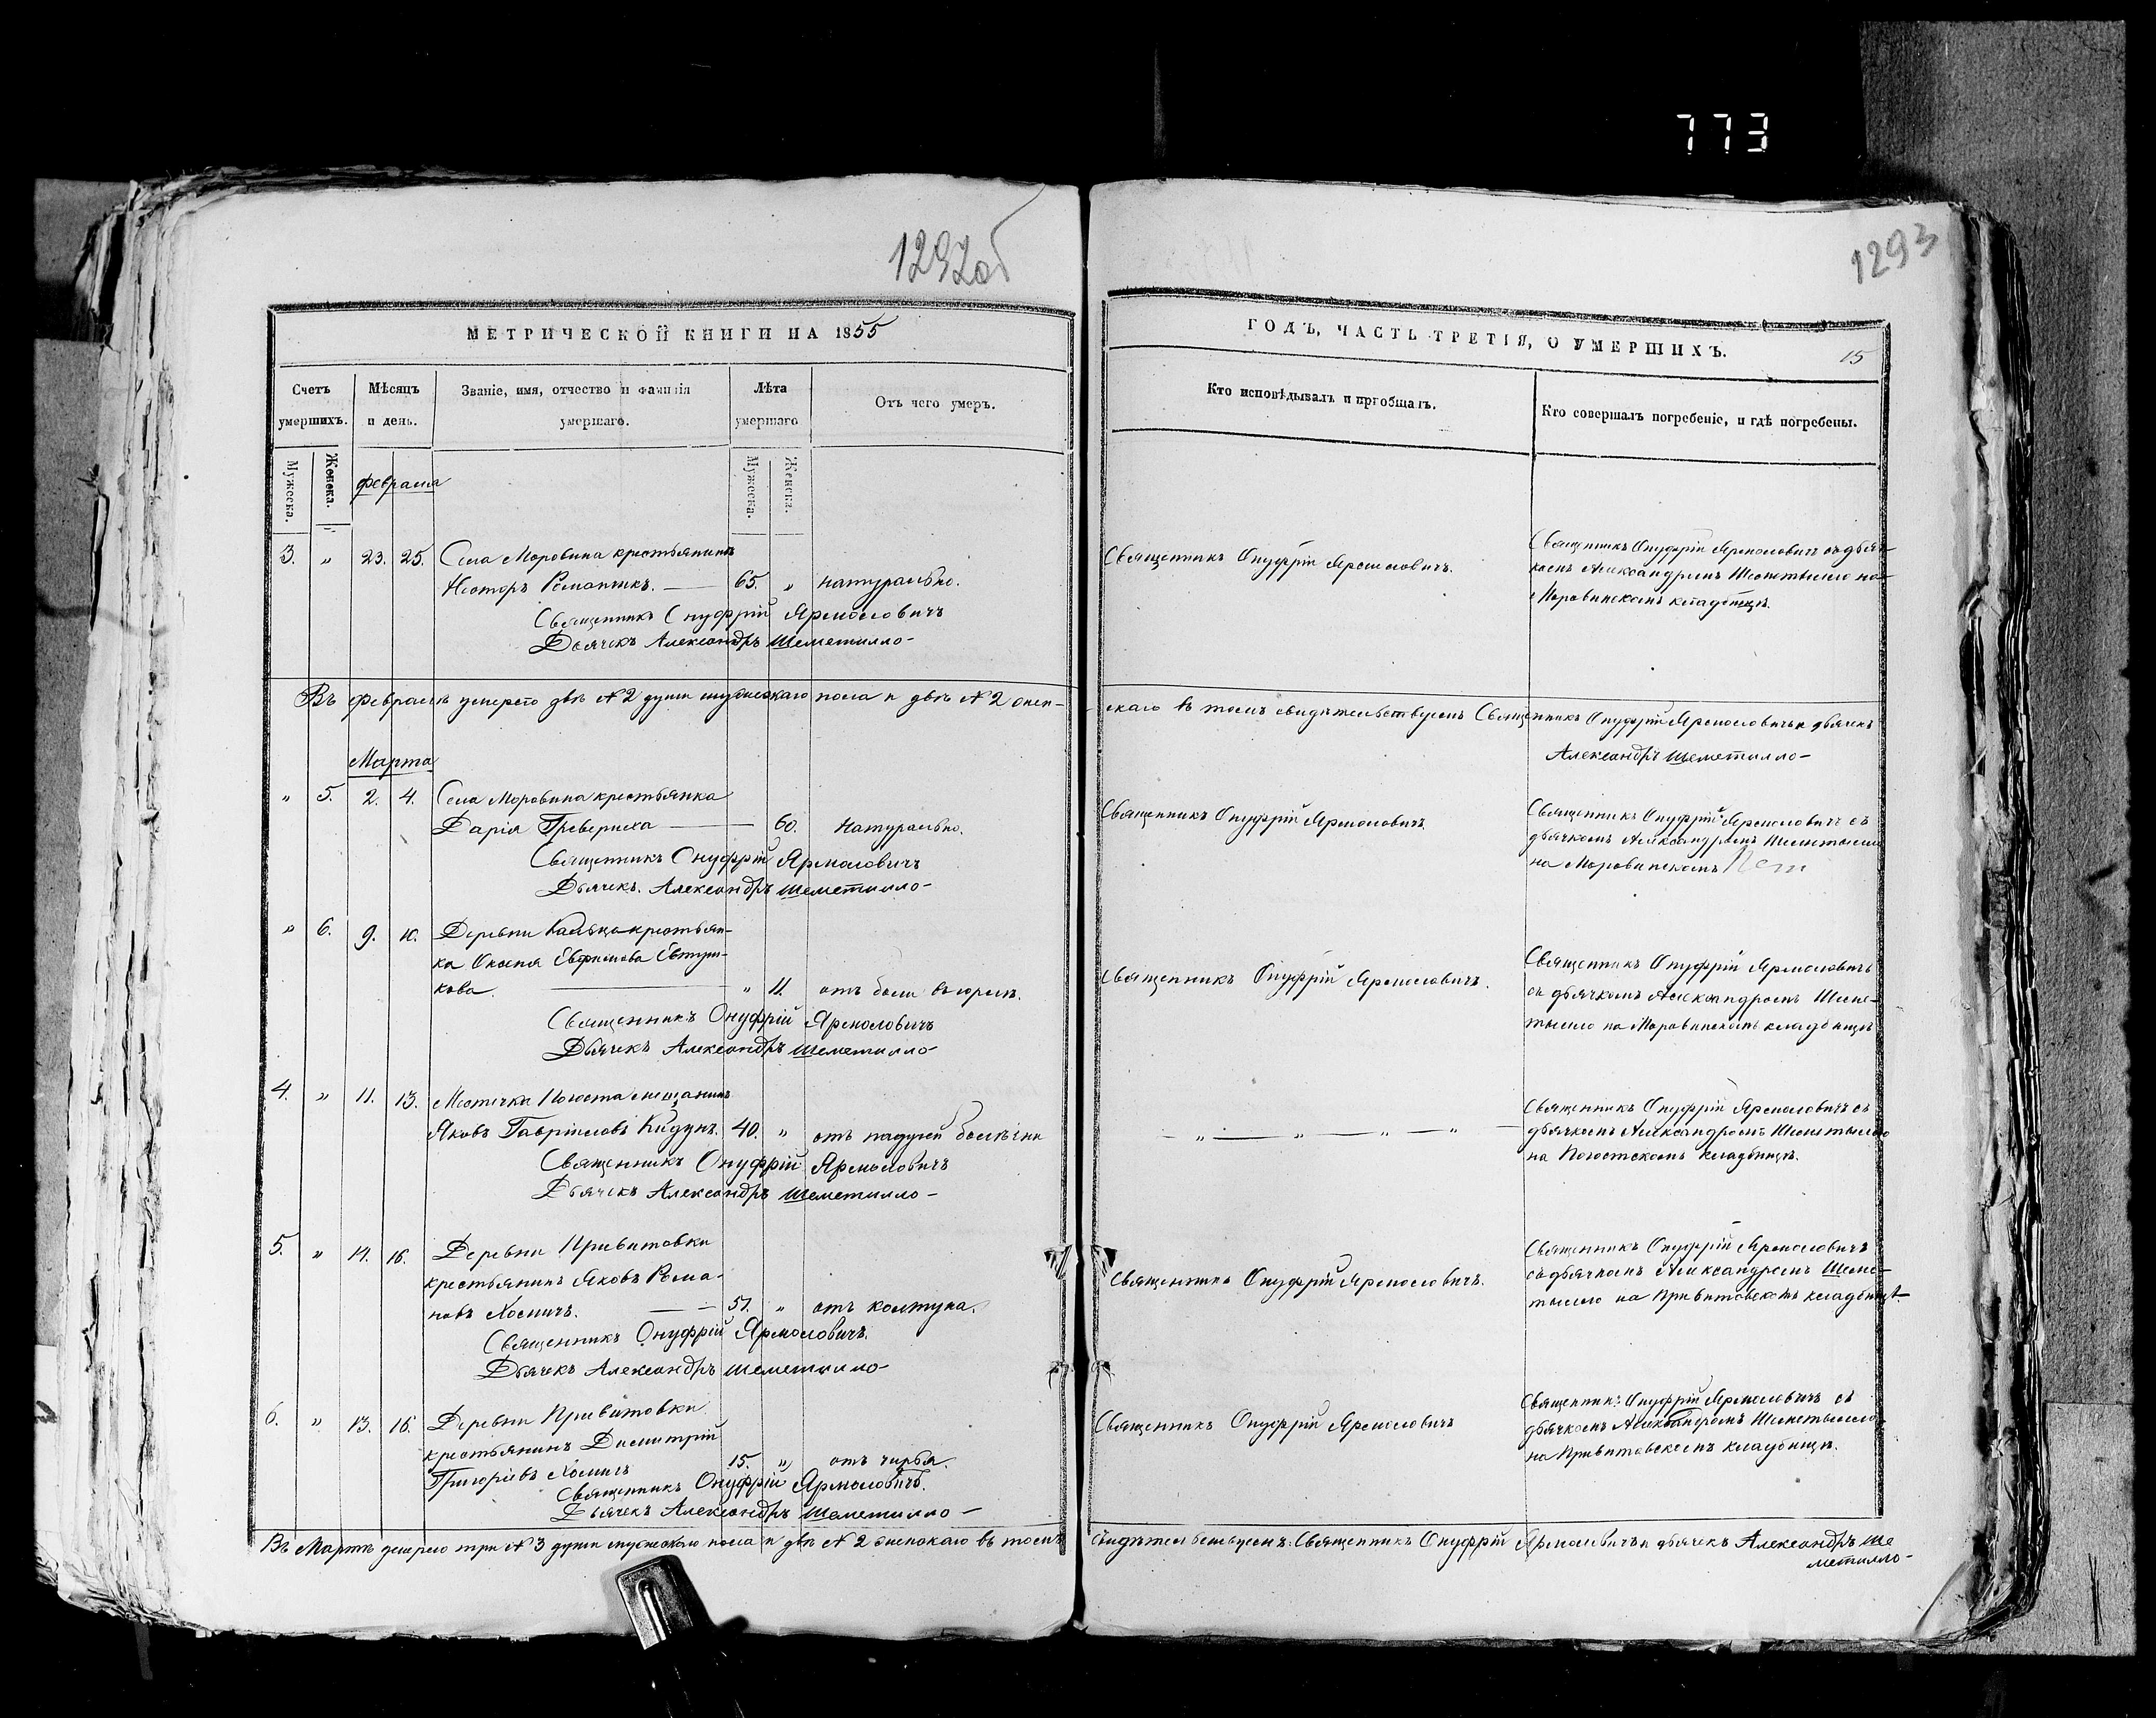 773
1292об
1293
МЕТРИЧЕСКОЙ КНИГИ НА 1855
ГОДЪ, ЧАСТЬ ТРЕТІЯ, О УМЕРШИХЪ.
15
Счетъ умершихъ.
Мѣсяцъ и день.
Званіе, имя, отчество и фамилія умершаго.
Лѣта умершаго
Отъ чего умеръ.
Кто исповѣдывалъ и пріобщалъ.
Кто совершалъ погребеніе, и гдѣ погребены.
Мужеска.
Женска.
Мужеска.
Женска.
Февраля
3. „ 23. 25. Села Моровина крестьянинъ
Несторъ Романчикъ. — 65. „ натурально.
Священникъ Онуфрій Ярмоловичъ
Дьячекъ Александръ Шеметилло
Священникъ Онуфрій Ярмоловичъ.
Священникъ Онуфрій Ярмоловичъ съ дьяч-
комъ Александромъ Шеметылло на
Моровинскомъ кладбищѣ.
Въ февралѣ умерло двѣ № 2 души мужескаго пола и двѣ № 2 жен-
скаго въ томъ свидѣтельствуемъ Священникъ Онуфрій Ярмоловичъ и дьячекъ
Александръ Шеметилло
Марта
„ 5. 2. 4. Села Моровина крестьянка
Дарія — 60. Натурально.
Священникъ Онуфрій Ярмоловичъ
Дьячекъ. Александръ Шеметилло
Священникъ Онуфрій Ярмоловичъ
Священникъ Онуфрій Ярмоловичъ съ
дьячкомъ Александромъ Шеметылло
на Моровинскомъ
„ 6. 9. 10. Деревни крестьян-
ка Оксеня Евфимова Евтуши-
кова. — „ 11. отъ боли въ горлѣ.
Священникъ Онуфрій Ярмоловичъ
Дьячекъ Александръ Шеметилло
Священникъ Онуфрій Ярмоловичъ.
Священникъ Онуфрій Ярмоловичъ
съ дьячкомъ Александромъ Шеме-
тылло на Моровинскомъ кладбищѣ
4. „ 11. 13. Мѣстечка Погоста мещанинъ
Яковъ Гавріиловъ Кидунъ. 40. „ отъ падучей болѣзни
Священникъ Онуфрій Ярмоловичъ
Дьячекъ Александръ Шеметилло
— „ — „ — „ — „ —
Священникъ Онуфрій Ярмоловичъ съ
дьячкомъ Александромъ Шеметылло
на Погостскомъ кладбищѣ.
5. „ 14. 16. Деревни Привитовки
крестьянинъ Яковъ Рома-
новъ Хомичъ. — 51. „ отъ колтуна.
Священникъ Онуфрій Ярмоловичъ.
Дьячекъ Александръ Шеметилло
Священникъ Онуфрій Ярмоловичъ.
Священникъ Онуфрій Ярмоловичъ
съ дьячкомъ Александромъ Шеме-
тылло на Привитовскомъ кладбищѣ.
6. „ 13. 16. Деревни Привитовки
крестьянинъ Димитрій
Григоріевъ Хомичъ 15. „ отъ чирья.
Священникъ Онуфрій Ярмоловичъ.
Дьячекъ Александръ Шеметилло
Священникъ Онуфрій Ярмоловичъ
Священникъ Онуфрій Ярмоловичъ съ
дьячкомъ Александромъ Шеметылло
на Привитовскомъ кладбищѣ.
Въ Мартѣ умерло три № 3 души мужескаго пола и двѣ № 2 женскаго въ томъ
свидѣтельствуемъ: Священникъ Онуфрій Ярмоловичъ и дьячекъ Александръ Ше
метилло